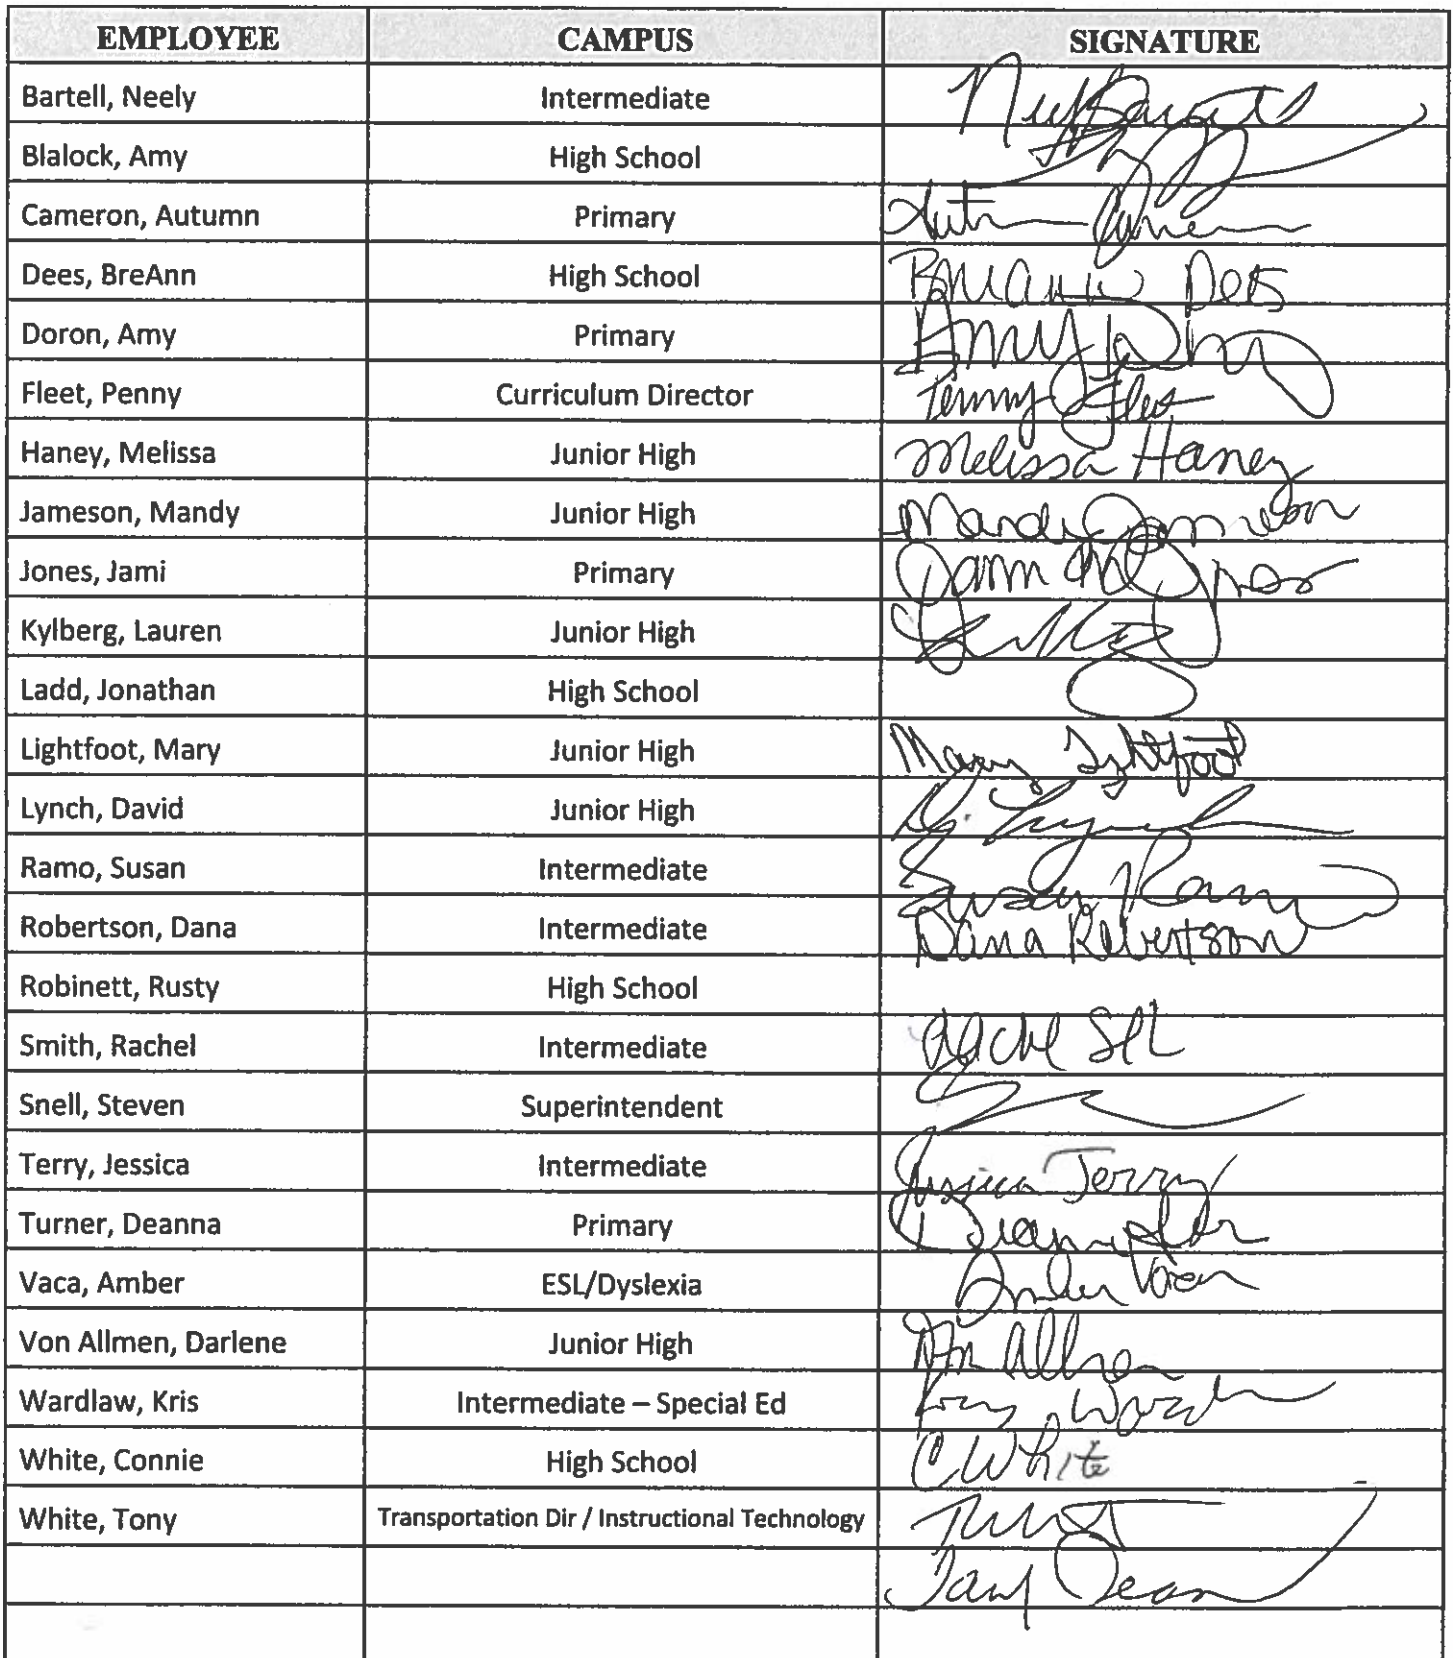 EMPLOYEE CAMPUS SIGNATURE
Bartell, Neely Intermediate
Blalock, Amy High School
Cameron, Autumn Primary
Dees, BreAnn High School Dees
Doron, Amy Primary Amy
Fleet, Penny Curriculum Director Penny
Haney, Melissa Junior High Melissa Haney
Jameson, Mandy Junior High
Jones, Jami Primary
Kylberg, Lauren Junior High
Ladd, Jonathan High School
Lightfoot, Mary Junior High Mary Lightfoot
Lynch, David Junior High D. Lynch
Ramo, Susan Intermediate Susan Ramo
Robertson, Dana Intermediate Dana Robertson
Robinett, Rusty High School
Smith, Rachel Intermediate Rachel
Snell, Steven Superintendent
Terry, Jessica Intermediate Jessica Terry
Turner, Deanna Primary
Vaca, Amber ESL/Dyslexia Amber Vaca
Von Allmen, Darlene Junior High
Wardlaw, Kris Intermediate – Special Ed
White, Connie High School C White
White, Tony Transportation Dir / Instructional Technology